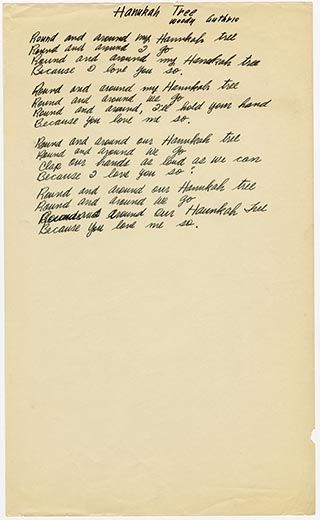 Hanukah Tree
Woody Guthrie
Round and around my Hanukah tree
Round and around I go
Round and around my Hanukah tree
Because I love you so.
Round and around my Hanukah tree
Round and around we go
Round and around, I'll hold your hand
Because you love me so.
Round and around our Hanukah tree
Round and around we go
Clap our hands as loud as we can
Because I love you so.
Round and around our Hanukah tree
Round and around we go
Round and around our Hanukah Tree
Because you love me so.